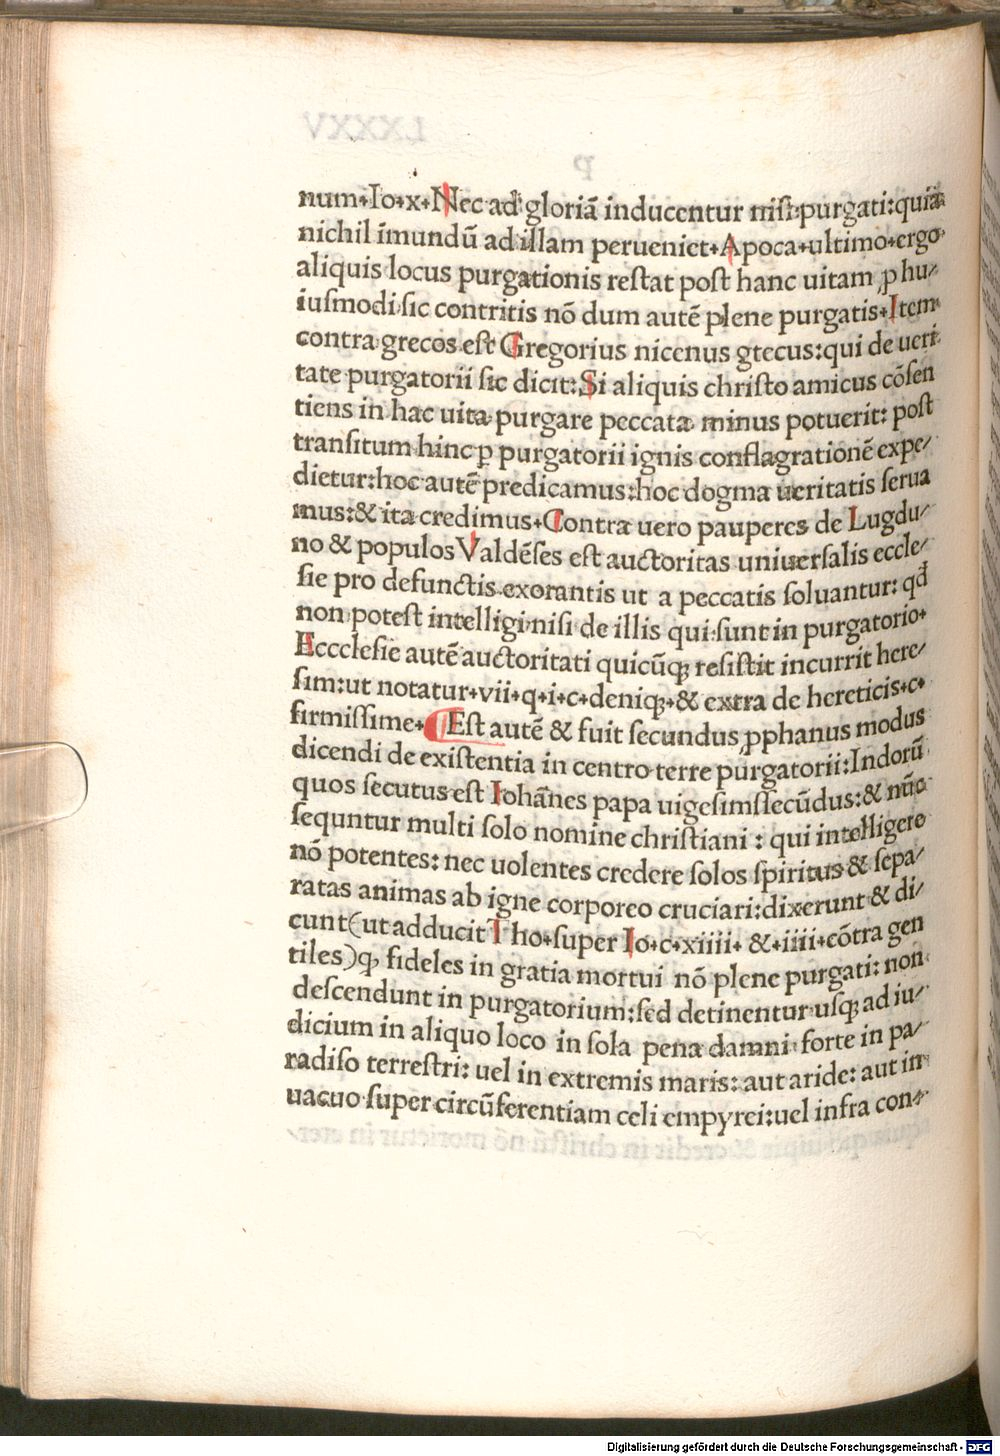 num⁌Io⁌x⁌Nec ad gloriā inducentur nisi purgati:quia
nichil īmundū ad illam perueniet⁌Apoca⁌ultimo⁌ergo
aliquis locus purgationis restat post hanc uitam ꝓ hu⸗
iusmodi sic contritis nō dum autē plene purgatis⁌Item
contra grecos est Gregorius nicenus gtecus:qui de ueri
tate purgatorii sic dicit:Si aliquis christo amicus cōsen
tiens in hac uita purgare peccata minus potuerit: post
transitum hinc ꝑ purgatorii ignis conflagrationē expe⸗
dietur:hoc autē predicamus:hoc dogma ueritatis serua
mus:& ita credimus⁌Contra uero pauperes de Lugdu⸗
no & populos Valdēses est auctoritas uniuersalis eccle⸗
sie pro defunctis exorantis ut a peccatis soluantur: qd̄
non potest intelligi nisi de illis qui sunt in purgatorio⁌
Eccclesie autē auctoritati quicūqꝫ resistit incurrit here⸗
sim:ut notatur⁌vii⁌q⁌i⁌c⁌deniqꝫ⁌& extra de hereticis⁌c⁌
firmissime⁌ ¶Est autē & fuit secundus ꝓphanus modus
dicendi de existentia in centro terre purgatorii:Indorū
quos secutus est Iohānes papa uigesimssecūdus:& nūc
sequntur multi solo nomine christiani : qui intelligere
nō potentes: nec uolentes credere solos spiritus & sepa⸗
ratas animas ab igne corporeo cruciari:dixerunt & di⸗
cunt(ut adducit Tho⁌super Io⁌c⁌xiiii⁌ &⁌iiii⁌cōtra gen
tiles)qꝫ fideles in gratia mortui nō plene purgati: non
descendunt in purgatorium:sed detinentur usqꝫ ad iu⸗
dicium in aliquo loco in sola pena damni forte in pa⸗
radiso terrestri: uel in extremis maris: aut aride: aut in
uacuo super circūferentiam celi empyrei:uel infra con⸗
Digitalisierung gefördert durch die Deutsche Forschungsgemeinschaft - DFG